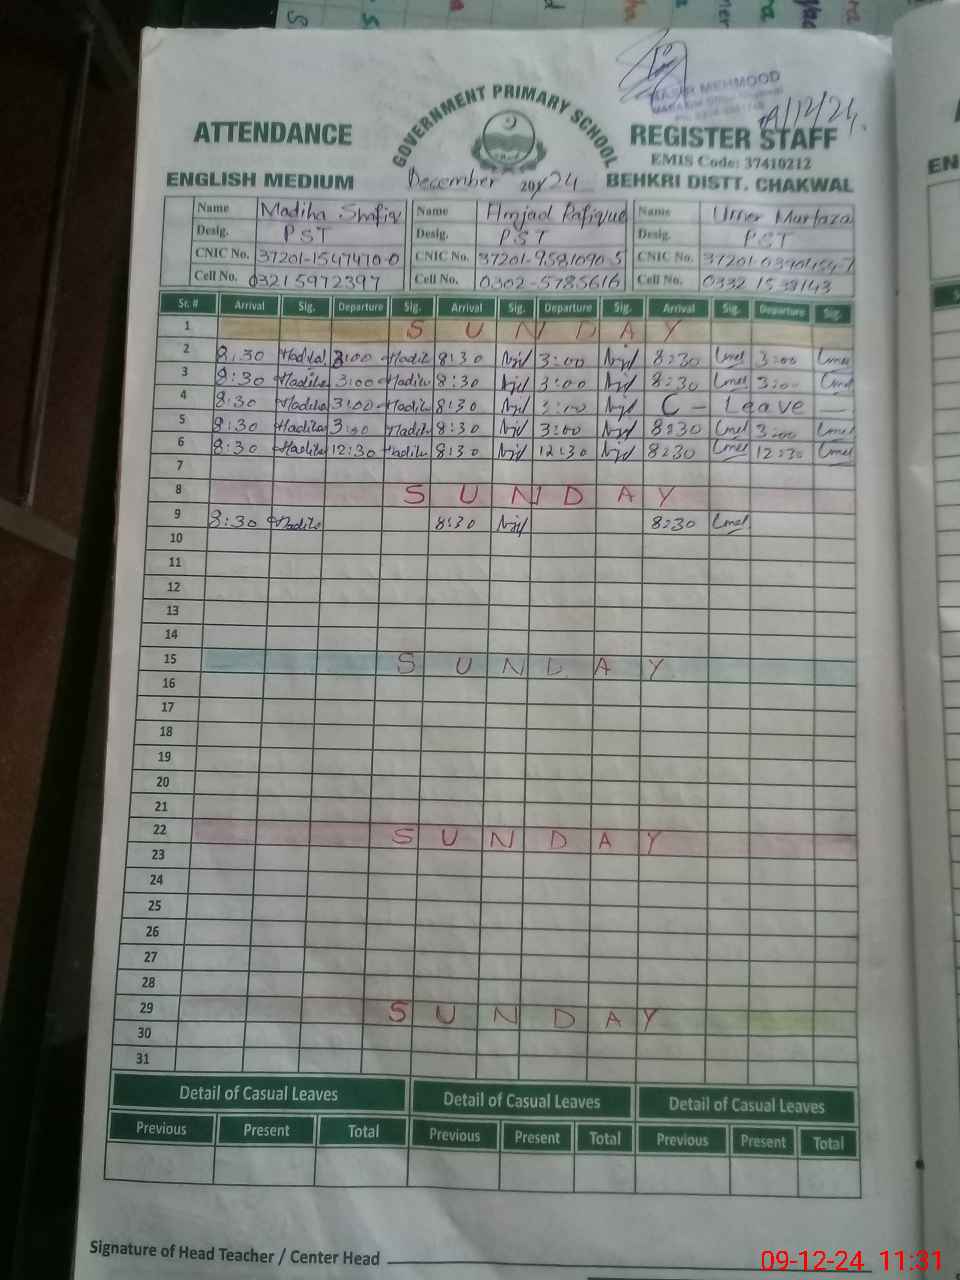 GOVERNMENT PRIMARY SCHOOL
MEHMOOD
ATTENDANCE
REGISTER STAFF
EMIS Code: 37410212
ENGLISH MEDIUM December 2024 BEHKRI DISTT. CHAKWAL
Name Madiha Shafiq Name Amjad Rafique Name Umer Murtaza
Desig. PST Desig. PST Desig. PST
CNIC No. 37201-1547470-0 CNIC No. CNIC No.
Cell No. 03215972397 Cell No. 0302-5785616 Cell No. 0332
Sr. # Arrival Sig. Departure Sig. Arrival Sig. Departure Sig. Arrival Sig. Departure Sig.
1 SUNDAY
2 8:30 Madiha 3:00 Madiha 8:30 3:00 8:30 Umer 3:00 Umer
3 8:30 Madiha 3:00 Madiha 8:30 3:00 8:30 Umer 3:00 Umer
4 8:30 Madiha 3:00 Madiha 8:30 3:00 C - Leave -
5 8:30 Madiha 3:00 Madiha 8:30 3:00 8:30 Umer 3:00 Umer
6 8:30 Madiha 12:30 Madiha 8:30 12:30 8:30 Umer 12:30 Umer
7
8 SUNDAY
9 8:30 Madiha 8:30 8:30 Umer
10
11
12
13
14
15 SUNDAY
16
17
18
19
20
21
22 SUNDAY
23
24
25
26
27
28
29 SUNDAY
30
31
Detail of Casual Leaves Detail of Casual Leaves Detail of Casual Leaves
Previous Present Total Previous Present Total Previous Present Total
Signature of Head Teacher / Center Head
09-12-24 11:31